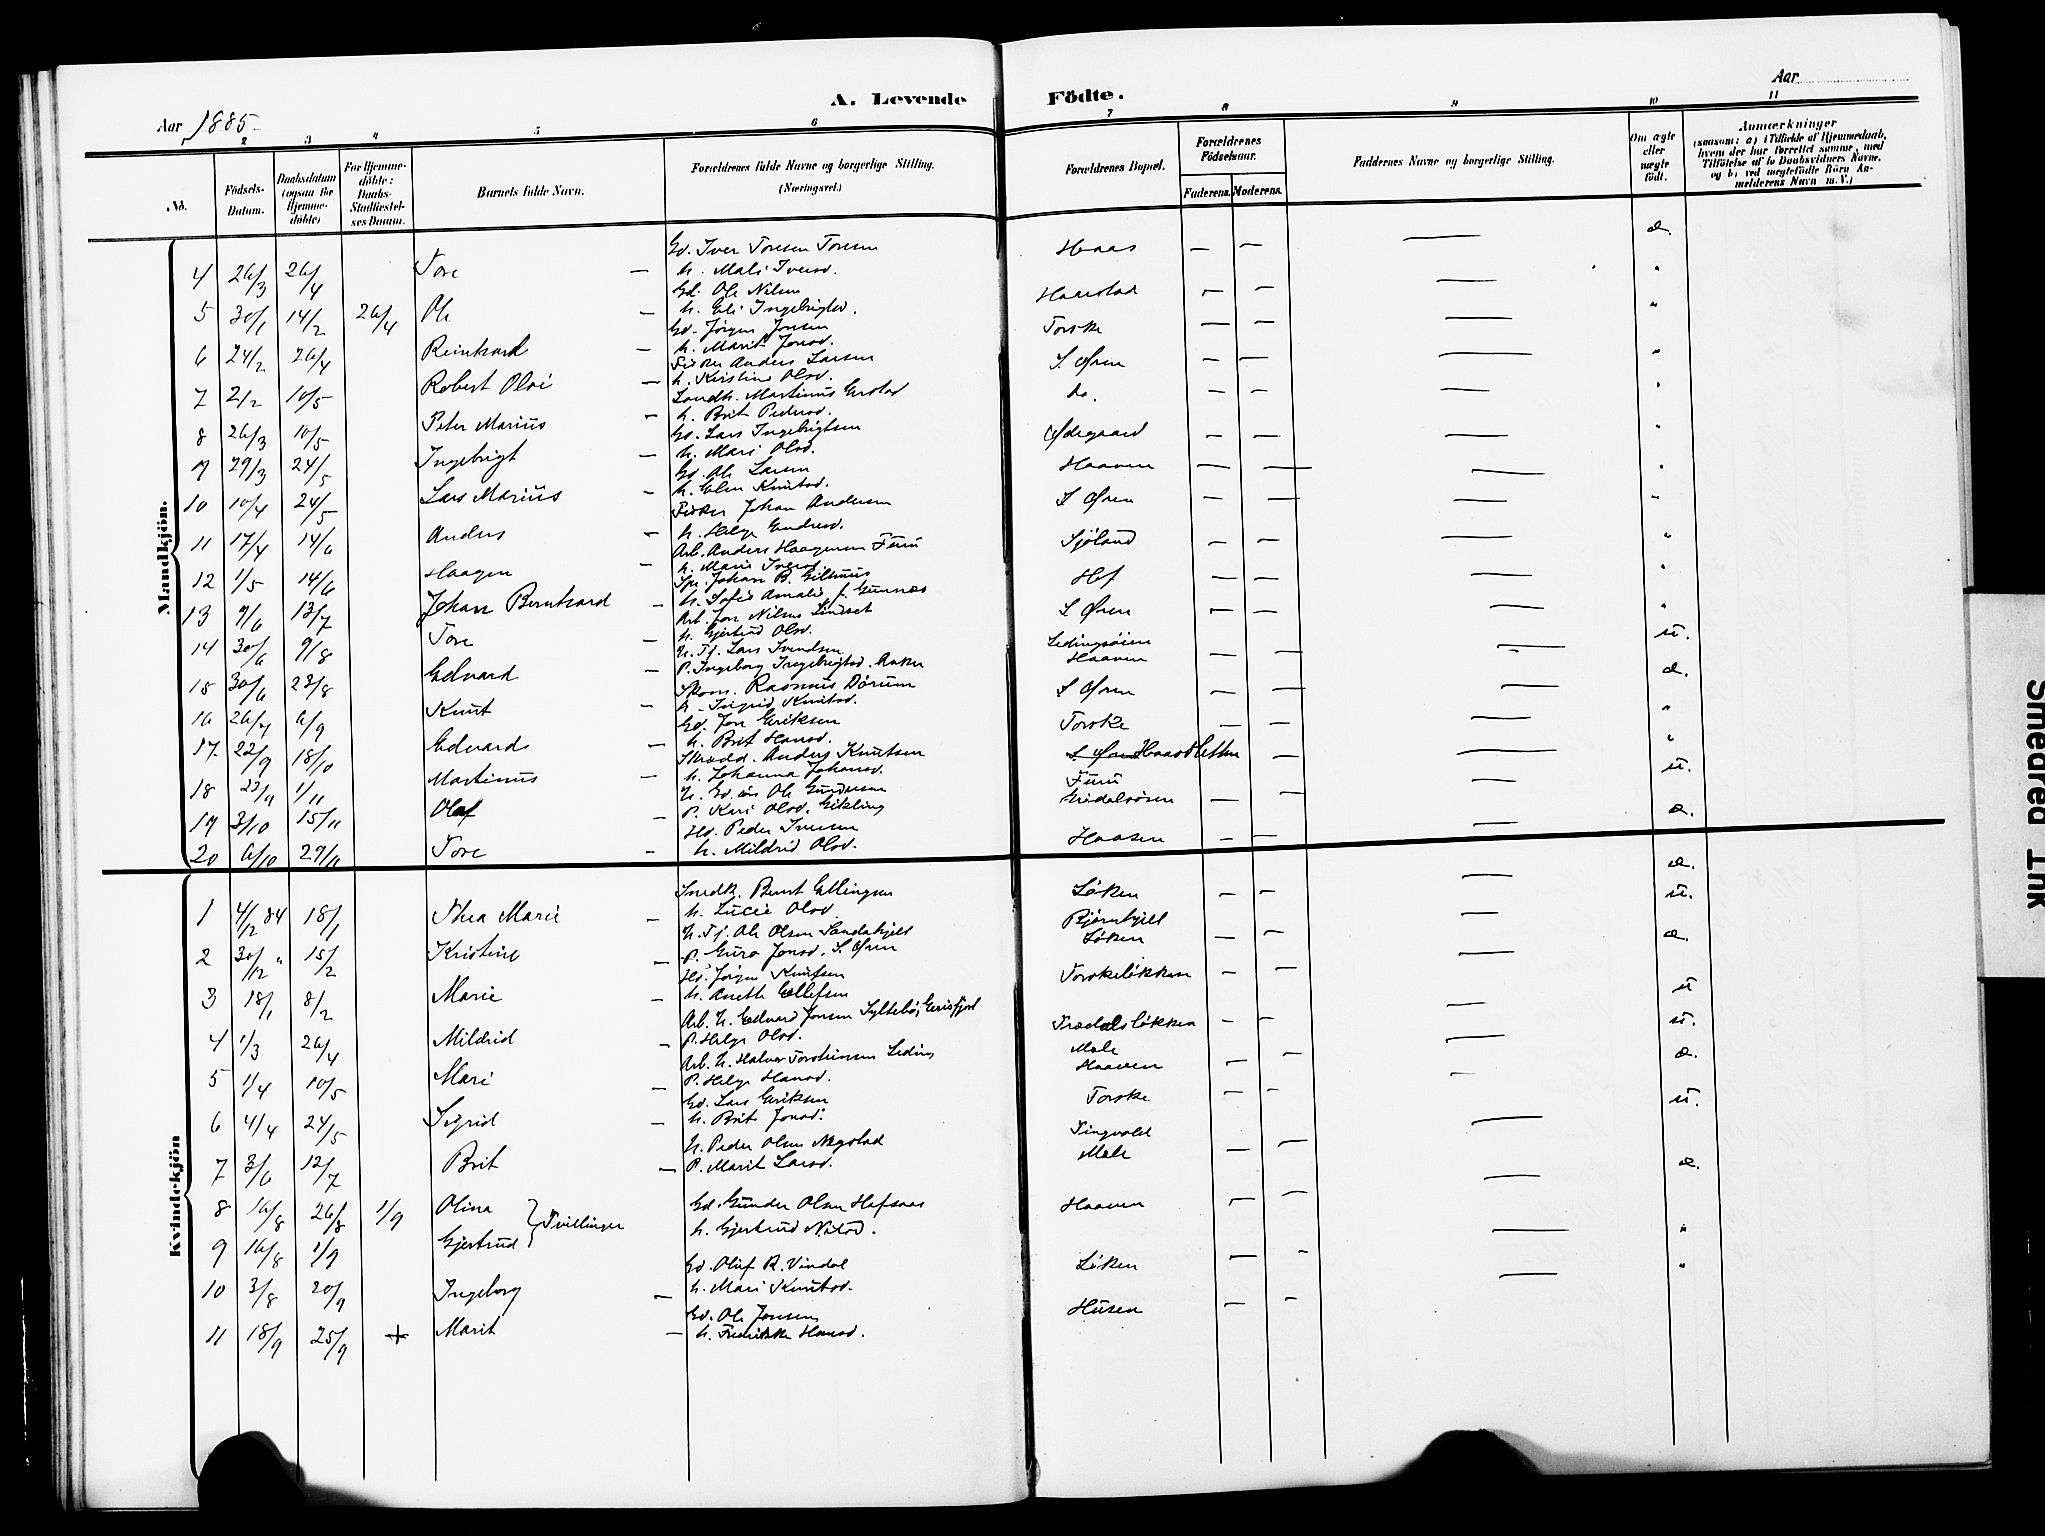 Aar 1885.
A. Levende Födte.
Aar
2 3 4 5 6 7 8 9 10 11
No.
Födsels-Datum.
Daabsdatum (ogsaa for Hjemmedöbte)
For Hjemmedöbte: Daabs-Stadfæstelses Datum.
Barnets fulde Navn.
Forældrenes fulde Navne og borgerlige Stilling. (Næringsvei.)
Forældrenes Bopæl.
Forældrenes Födselsaar.
Faderens. Moderens.
Faddernes Navne og borgerlige Stilling.
Om ægte eller uægte födt.
Anmærkninger
(saasom: a) i Tilfælde af Hjemmedaab, hvem der har forrettet samme, med Tilföielse af to Daabsvidners Navne, og b) ved uægtefödte Börn Anmelderens Navn m. V.)
Mandkjön.
4 26/3 26/4 Tore — Gd. Iver Toresen Toresen Haas — — — æ.
h. Mali Iversd.
5 30/1 14/2 26/4 Ole — Gd. Ole Nilsen Haarstad — — — "
h. Eli Ingebrigtsd.
6 24/2 26/4 Reinhard — Gd. Jørgen Jonsen Torske — — — "
h. Marit Jonsd.
7 2/2 10/5 Robert Olai — Fisker Anders Larsen S. Øren — — — "
h. Kirstine Olsd.
8 26/3 10/5 Peter Marius — Landh. Martinus Erstad do. — — — "
h. Brit Pedersd.
9 29/3 24/5 Ingebrigt — Gd. Lars Ingebrigtsen Ødegaard — — — "
h. Mari Olsd.
10 10/4 24/5 Lars Marius — Gd. Ole Larsen Haaven — — — "
h. Elen Knutsd.
11 17/4 14/6 Anders — Fisker Johan Andersen S Øren — — — "
h. Helge Endresd.
12 1/5 14/6 Haagen — Arb. Anders Haagensen Furu Sjøland — — — "
h. Marie Iversd.
13 9/6 13/7 Johan Bernhard — Johan B. Hof — — — "
h. Sofie Amalie f. Gunnæs
14 30/6 9/8 Tore — Arb. Jon Nilsen Lindset S Øren — — — "
h. Gjertrud Olsd.
15 30/6 23/8 Edvard — U. Tj. Lars Svendsen Ledingsøien — — — u.
P. Ingeborg Ingebrigtsd. Haaven
16 26/7 6/9 Knut — Skom. Rasmus Dørum S Øren — — — æ.
h. Ingrid Knutsd.
17. 22/9 18/10 Edvard — Gd. Jon Eriksen Torske — — — "
h. Brit Hansd.
18 22/9 1/11 Martinus — Skrædd. Anders Knutsen S. Øren Haasletten — — "
h. Johanna Johansd.
19 3/10 15/11 Olaf — U. Gd. Ole Gundersen Furu — — — u.
P. Kari Olsd. Eikling
20 6/10 29/11 Tore — Hd. Peder Iversen Haasen — — — æ.
h. Mildrid Olsd.
Kvindekjön
1 4/12 84 18/1 Thea Marie — Snedk. Bernt Ellingsen Løken — — — æ.
h. Lucie Olsd.
2 30/12 " 15/2 Kristine — U. Tj. Ole Olsen Sandakjelt — — — u.
P. Guro Jonsd. S. Øren Løken
3 18/1 8/2 Marie — Hd. Jørgen Knutsen Torskeløkken — — — æ.
h. Anette Ellefsen
4 1/3 26/4 Mildrid — Arb. U. Edvard Jonsen Syltebø, Eirisfjord Trædalsløkken — — — u
P. Helge Olsd.
5 1/4 10/5 Mari — Arb. U. Halvor Torstensen Leding Mæle — — — u.
P. Helge Hansd. Haaven
6 4/4 24/5 Sigrid — Gd. Lars Eriksen Torske — — — æ.
h. Brit Jonsd.
7 3/6 12/7 Brit — U. Peder Olsen Tingvold — — — u.
P. Marit Larsd. Mæle
8 16/8 26/8 1/9 Olina } Tvillinger Gd. Gunder Olsen Hafsaas Haaven — — — æ.
9 16/8 1/9 Gjertrud h. Gjertrud Nilsd.
10 3/8 20/9 Ingeborg — Gd. Oluf R. Vindal Løken — — — "
h. Mari Knutsd.
11 18/9 25/9 + Marit — Gd. Ole Jonsen Husen — — — "
h. Fredrikke Hansd.
Smeared Ink